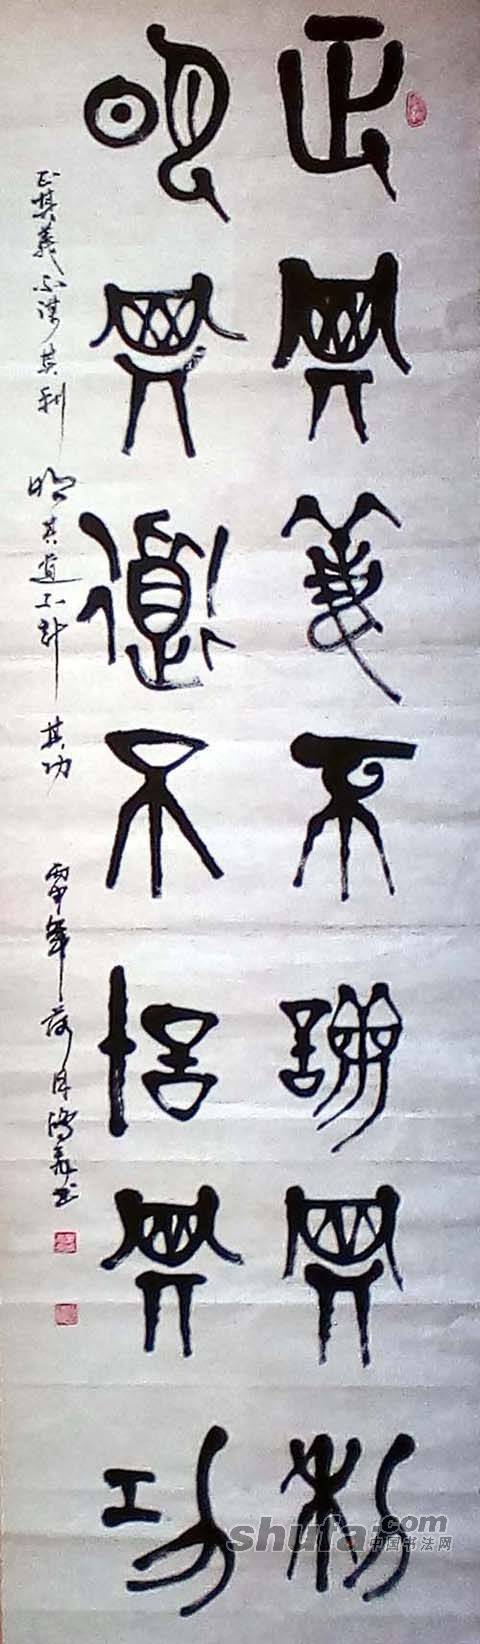 正其義不謀其利
明其道不計其功
正其義不谋其利 明其道不計其功 丙申年荷月 书
shufa.com
中国书法网